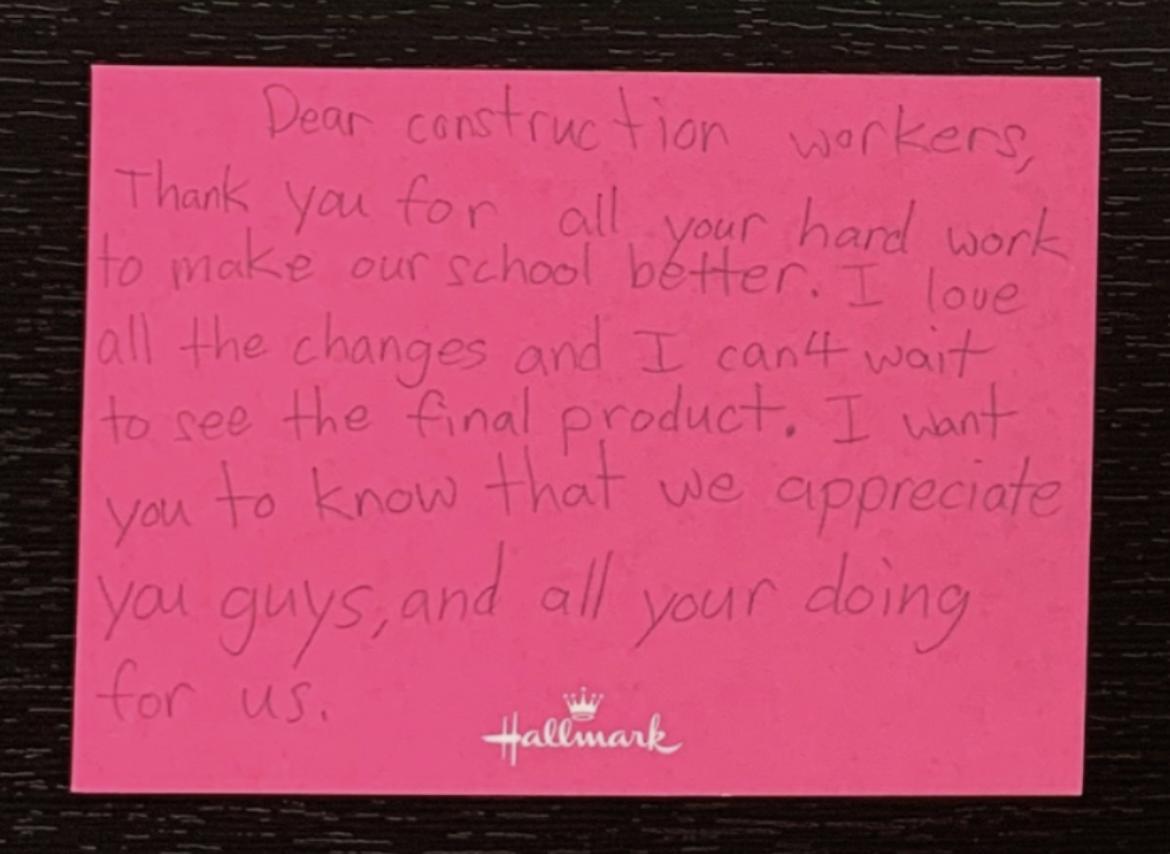 Dear construction workers,
Thank you for all your hard work
to make our school better. I love
all the changes and I can't wait
to see the final product. I want
you to know that we appreciate
you guys, and all your doing
for us.
Hallmark